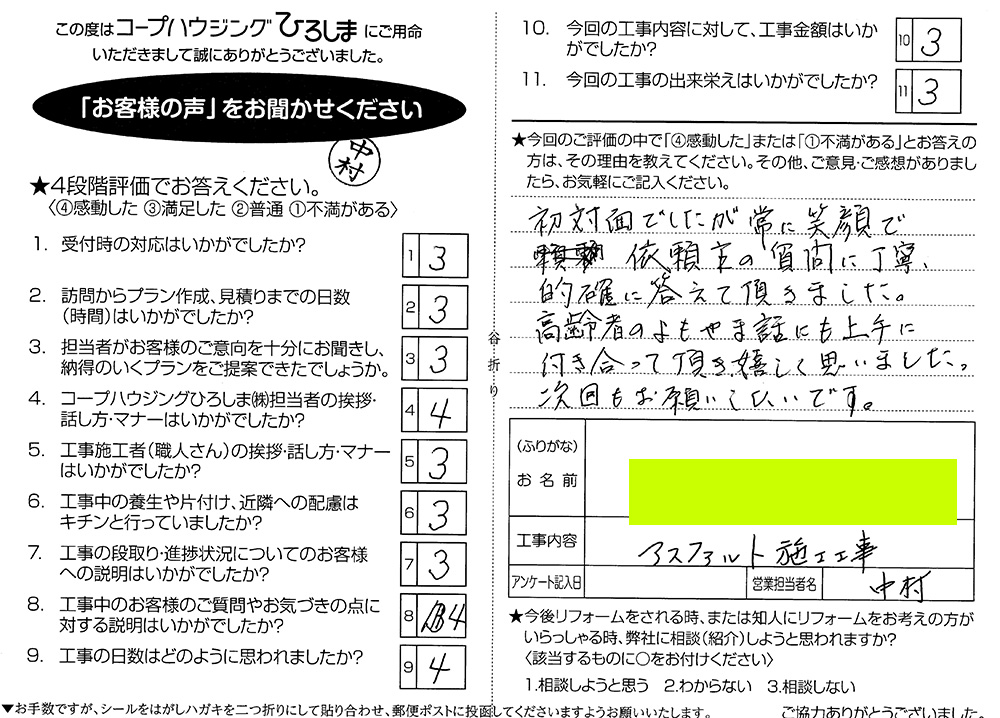 この度はコープハウジングひろしまにご用命
いただきまして誠にありがとうございました。
「お客様の声」をお聞かせください
中村
★4段階評価でお答えください。
〈④感動した ③満足した ②普通 ①不満がある〉
1. 受付時の対応はいかがでしたか?
1 3
2. 訪問からプラン作成、見積りまでの日数
(時間)はいかがでしたか?
2 3
3. 担当者がお客様のご意向を十分にお聞きし、
納得のいくプランをご提案できたでしょうか。
3 3
4. コープハウジングひろしま㈱担当者の挨拶・
話し方・マナーはいかがでしたか?
4 4
5. 工事施工者(職人さん)の挨拶・話し方・マナー
はいかがでしたか?
5 3
6. 工事中の養生や片付け、近隣への配慮は
キチンと行っていましたか?
6 3
7. 工事の段取り・進捗状況についてのお客様
への説明はいかがでしたか?
7 3
8. 工事中のお客様のご質問やお気づきの点に
対する説明はいかがでしたか?
8 4
9. 工事の日数はどのように思われましたか?
9 4
▼お手数ですが、シールをはがしハガキを二つ折りにして貼り合わせ、郵便ポストに投函してくださいますようお願いいたします。
谷折り
10. 今回の工事内容に対して、工事金額はいか
がでしたか?
10 3
11. 今回の工事の出来栄えはいかがでしたか?
11 3
★今回のご評価の中で「④感動した」または「①不満がある」とお答えの
方は、その理由を教えてください。その他、ご意見・ご感想がありまし
たら、お気軽にご記入ください。
初対面でしたが常に笑顔で
依頼主の質問に丁寧、
的確に答えて頂きました。
高齢者のよもやま話にも上手に
付き合って頂き嬉しく思いました。
次回もお願いしたいです。
(ふりがな)
お名前
工事内容 アスファルト施工工事
アンケート記入日 営業担当者名 中村
★今後リフォームをされる時、または知人にリフォームをお考えの方が
いらっしゃる時、弊社に相談(紹介)しようと思われますか?
〈該当するものに○をお付けください〉
1.相談しようと思う 2.わからない 3.相談しない
ご協力ありがとうございました。